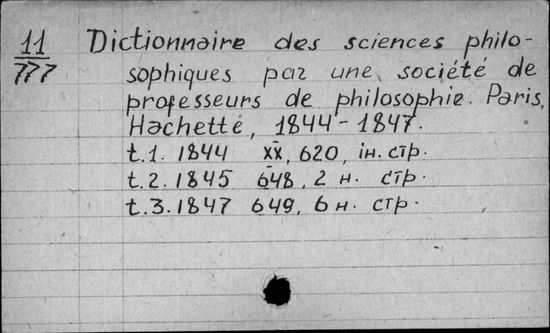 11
777
Dictionnaire des sciences philo-
sophiques par une société de
professeurs de philosophie. Paris,
Hachette, 1844-1847.
t.1. 1844 XX, 620, 1н. стр.
t.2. 1845 648, 2 н. стр.
t.3. 1847 649, 6 н. стр.